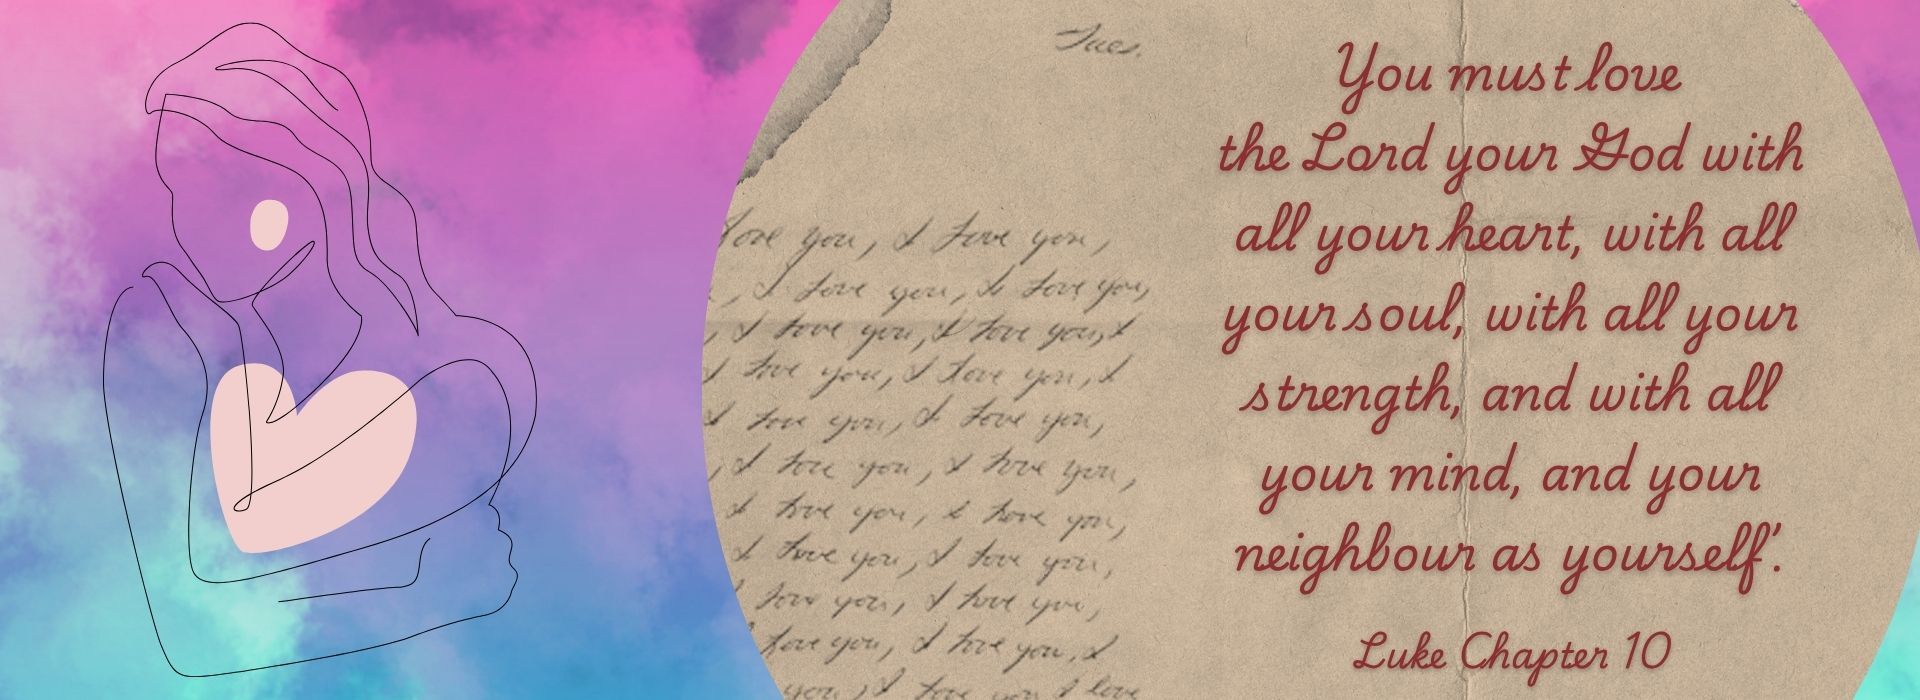 Tues.
love you, I love you,
, I love you, I love you,
, I love you, I love you, I
I love you, I love you, I
I love you, I love you,
, I love you, I love you,
I love you, I love you,
I love you, I love you,
I love you, I love you,
love you, I love you, I
you, I love you I love
You must love
the Lord your God with
all your heart, with all
your soul, with all your
strength, and with all
your mind, and your
neighbour as yourself’.
Luke Chapter 10